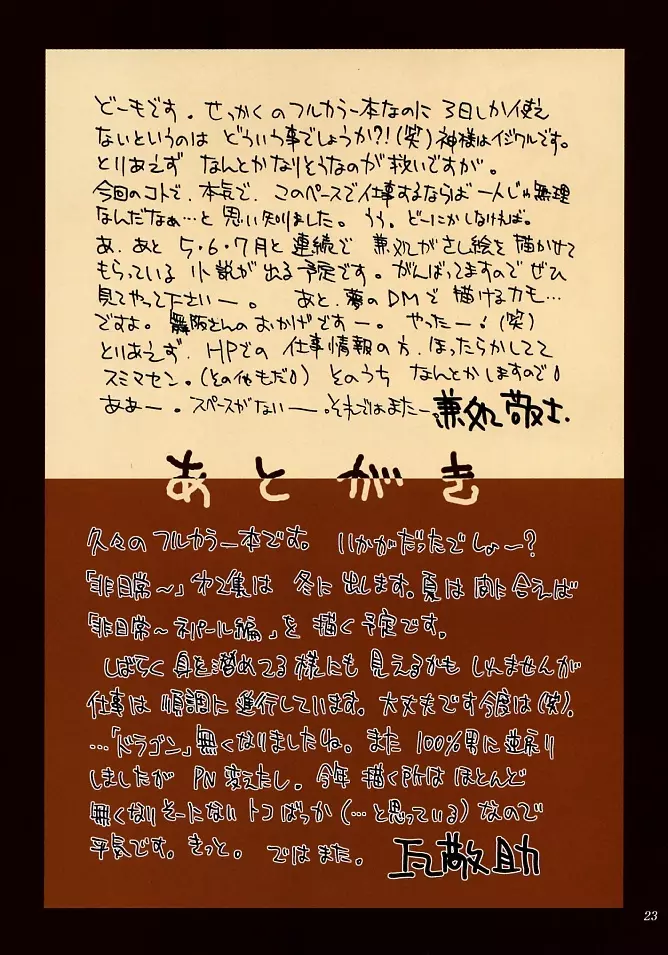 どーもです。せっかくのフルカラー本なのに 3日しか使え
ないというのは どういう事でしょうか?!(笑)神様はイジワルです。
とりあえず なんとかなりそうなのが救いですが。
今回のコトで、本気で、このペースで仕事するならば一人じゃ無理
なんだなぁ…と思い知りました。うう。どーにかしなければ。
あ、あと 5・6・7月と連続で 兼処がさし絵を描かせて
もらっている 小説が出る予定です。がんばってますので ぜひ
見てやって下さいー。 あと、夢のDMで描けるカモ…
ですよ。舞阪さんのおかげですー。やったー!(笑)
とりあえず、HPでの 仕事情報の方、ほったらかしてて
スミマセン。(その他もだ!) そのうち なんとかしますので!
ああー。スペースがないー。それではまたー。兼処敬士.
あとがき
久々のフルカラー本です。いかがだったでしょー?
「非日常〜」第2集は 冬に出します。夏は間に合えば
「非日常〜ネパール編」を描く予定です。
しばらく身を潜めてる様にも見えるかもしんませんが
仕事は順調に進行しています。大丈夫です今度は(笑)。
…「ドラゴン」無くなりましたね。また 100%男に逆戻り
しましたが PN変えたし。今年描く所は ほとんど
無くなりそーにないトコばっか(…と思っている)なので
平気です。きっと。ではまた。瓦敬助
23